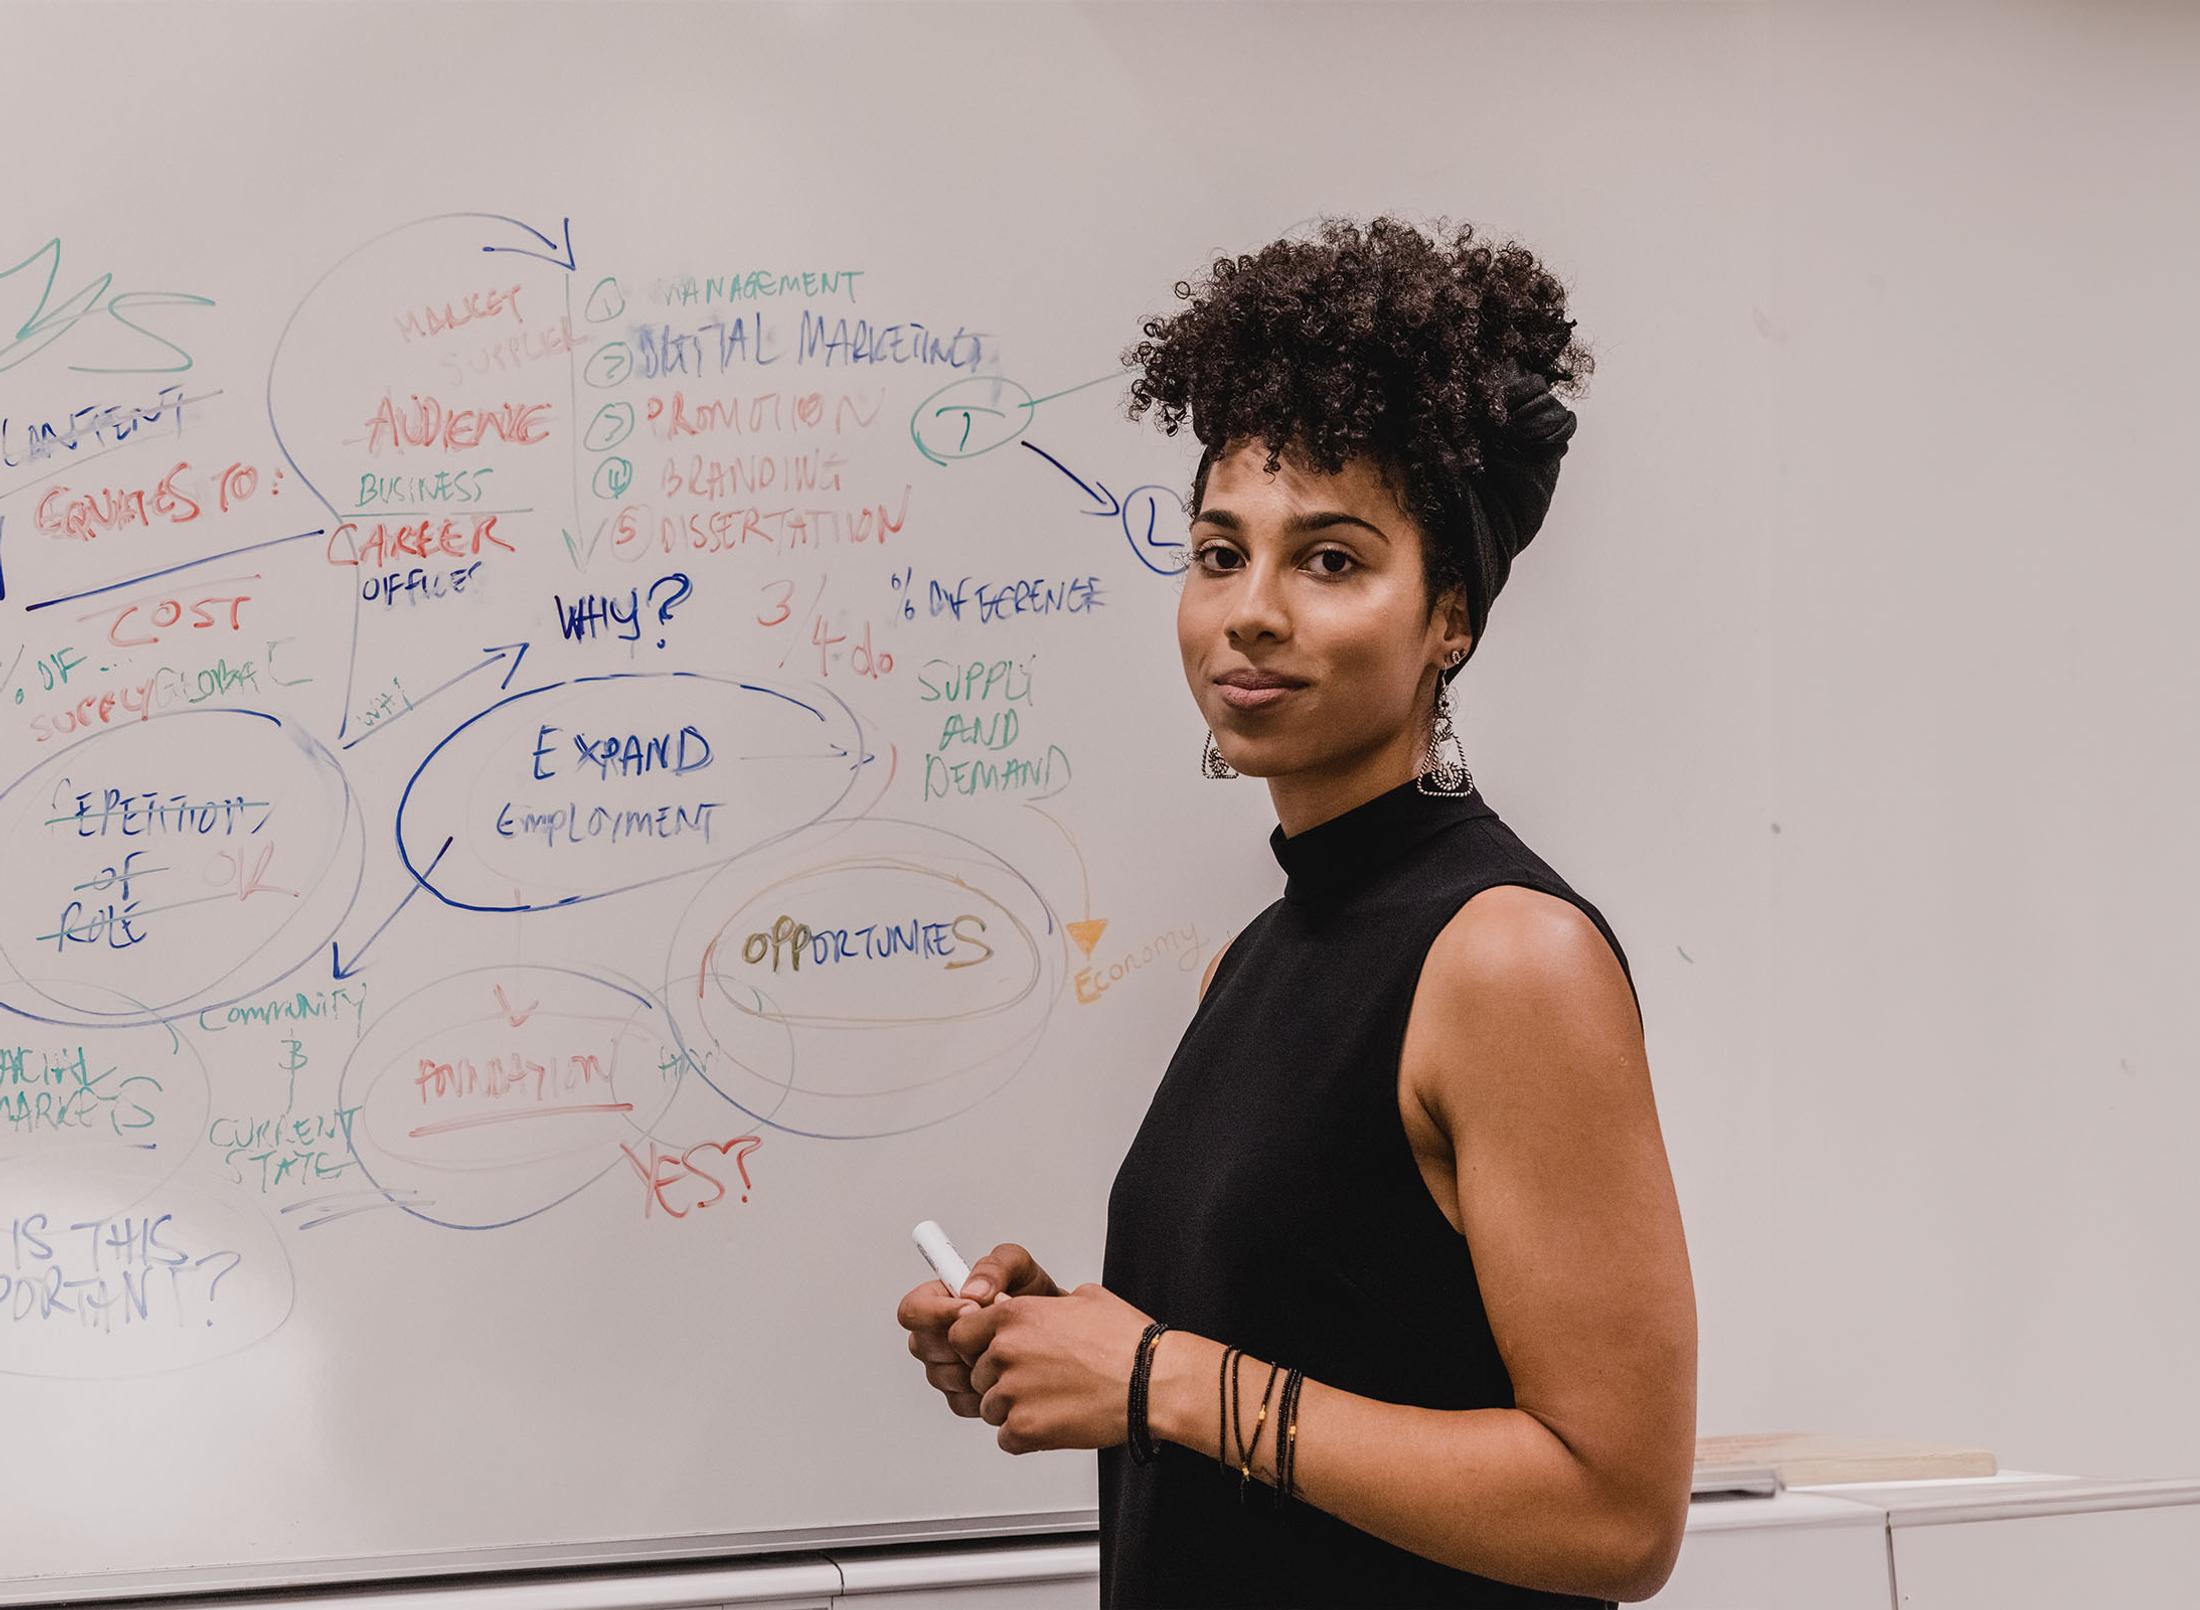 MARKET
SUPPLIER
AUDIENCE
BUSINESS
CAREER
OFFICES
① MANAGEMENT
② DIGITAL MARKETING
③ PROMOTION
④ BRANDING
⑤ DISSERTATION
EQUATES TO:
COST
% OF ...
SUPPLY GLOBAL
WHY
WHY?
3/4 do
% DIFFERENCE
SUPPLY
AND
DEMAND
Economy
EXPAND
EMPLOYMENT
OPPORTUNITIES
REPETITION
OF OR
ROLE
COMMUNITY
CURRENT
STATE
FOUNDATION
YES?
MARKETS
IS THIS
PORTANT?
T
L